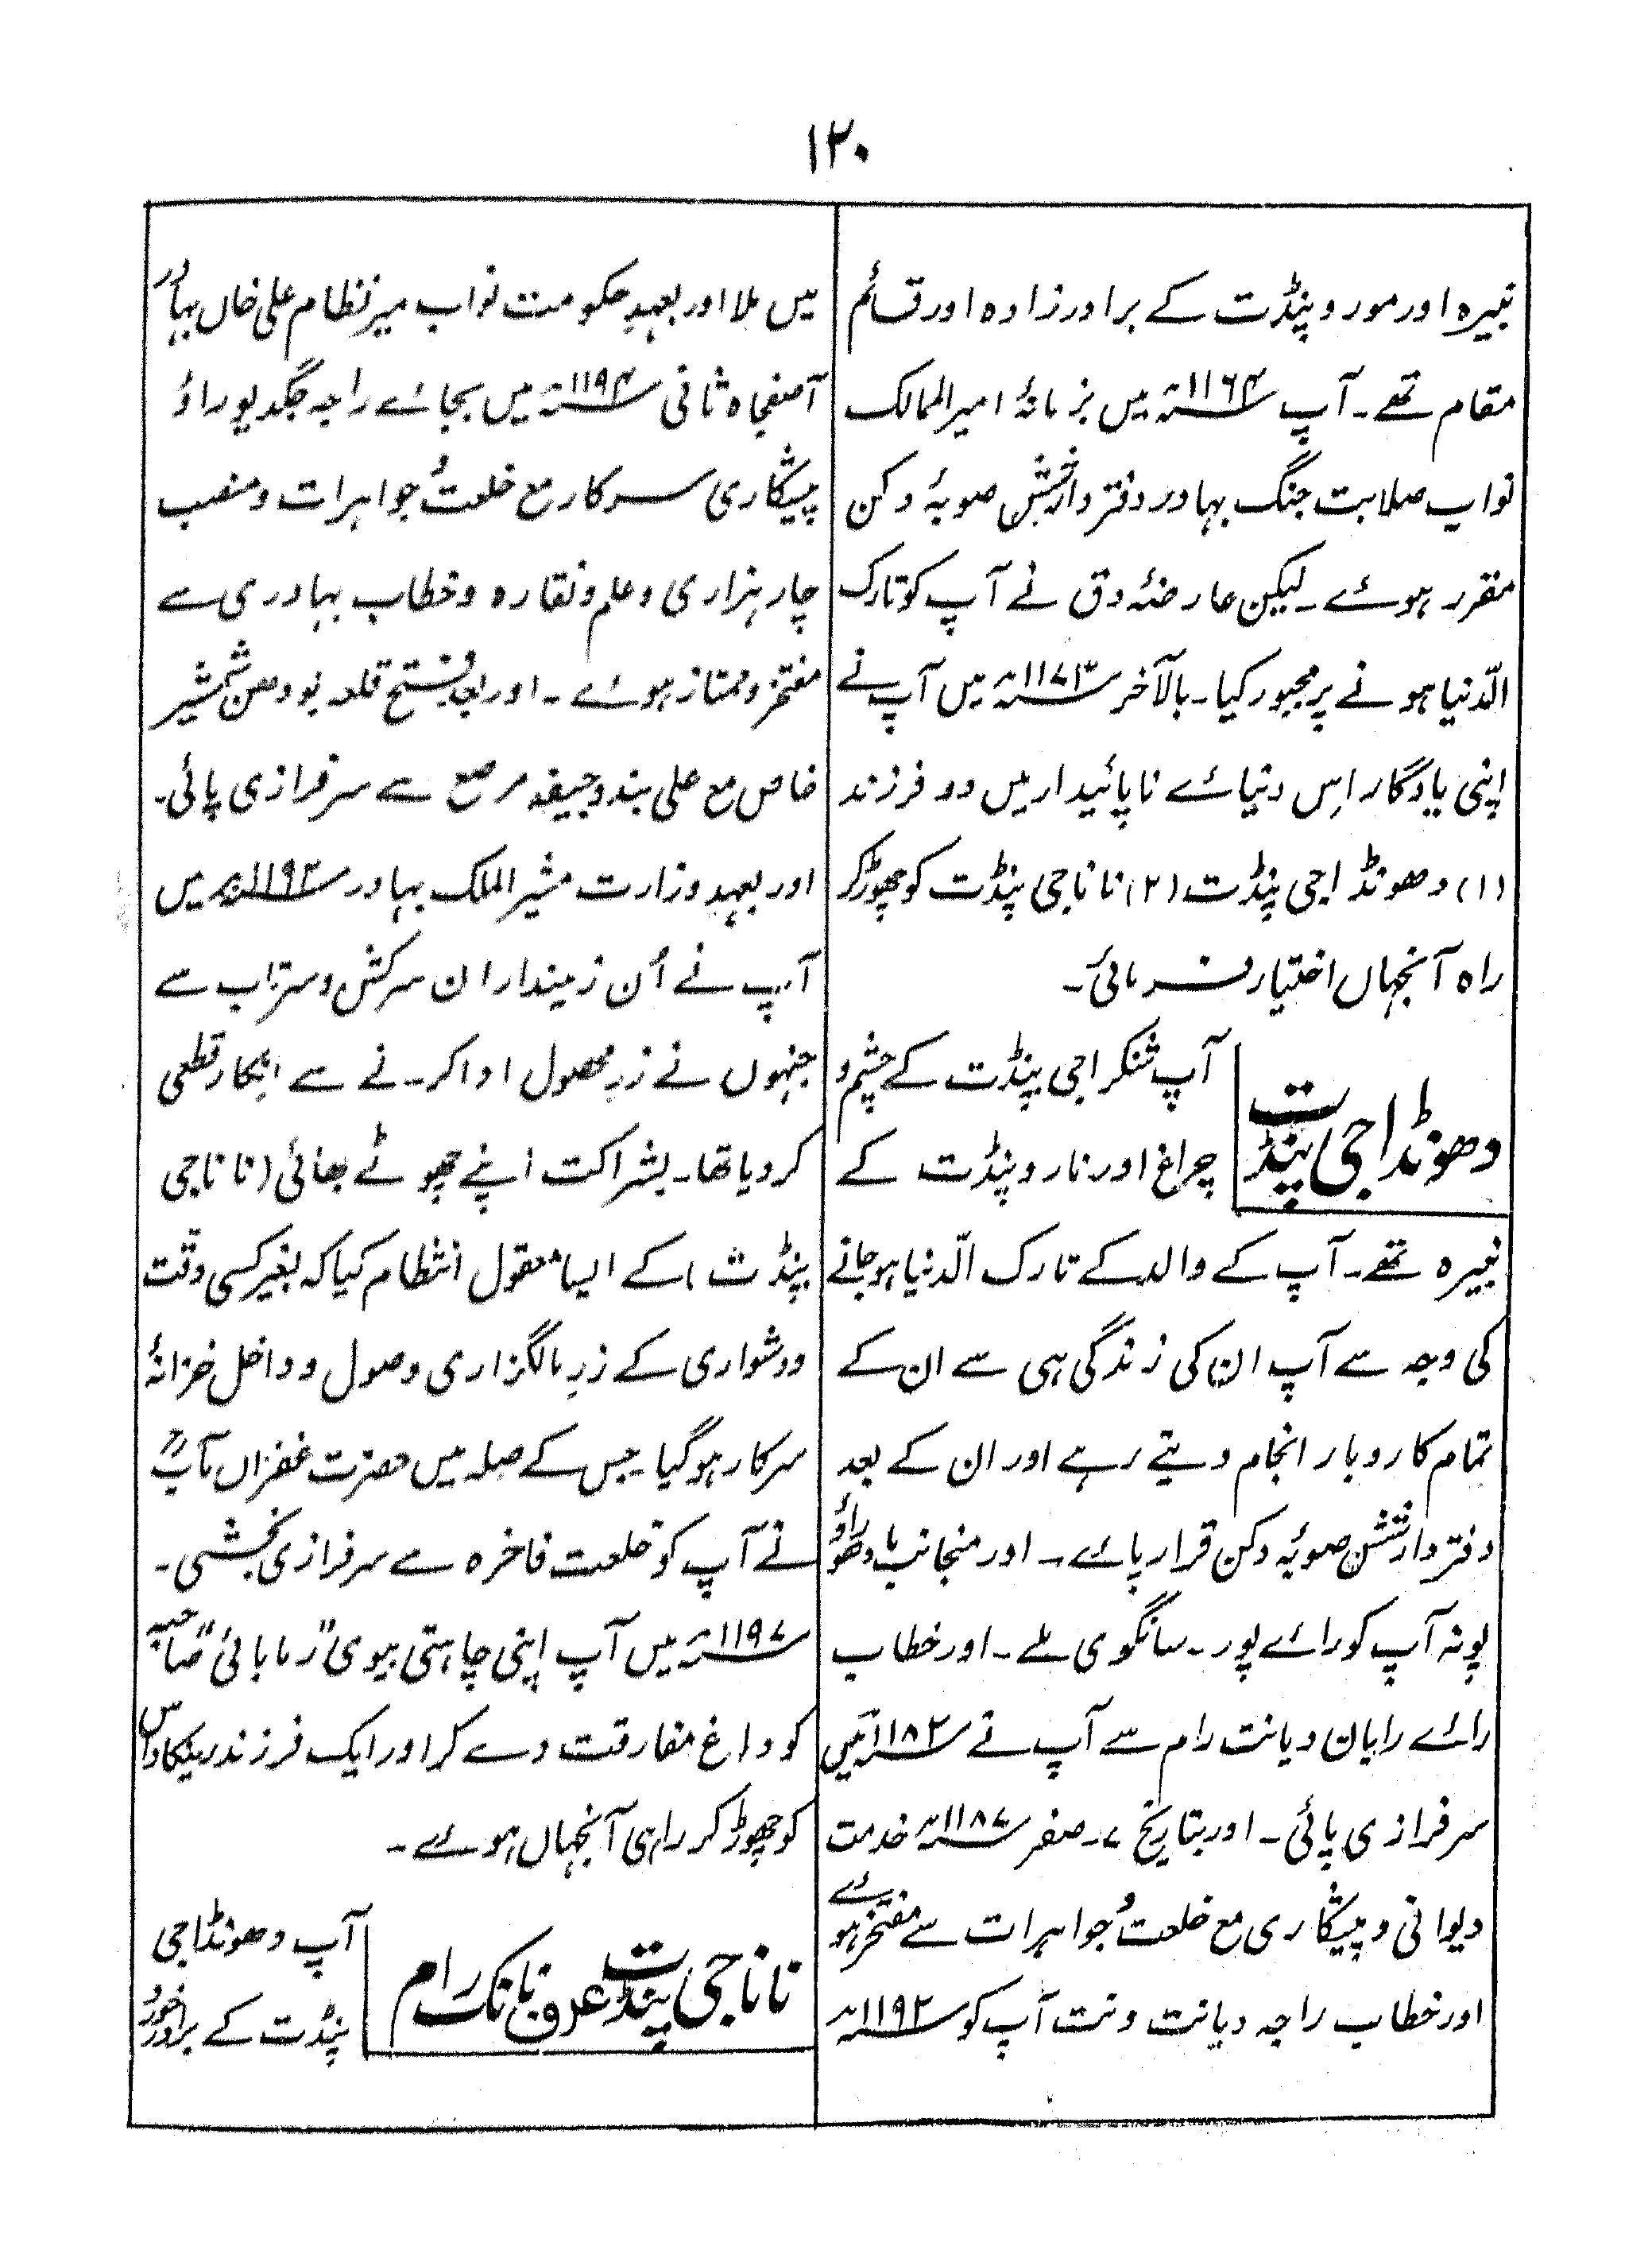 ۱۲۰
نبیرہ اور مورو پنڈت کے برادرزادہ اور قائم
مقام تھے۔ آپ ۱۱۶۴ھ میں بزمانۂ امیرالممالک
نواب صلابت جنگ بہادر دفتردارشش صوبۂ دکن
مقرر ہوئے۔ لیکن عارضۂ دق نے آپ کو تارک
الدّنیا ہونے پر مجبور کیا۔ بالآخر ۱۱۷۳ھ میں آپ نے
اپنی یادگار اِس دنیائے ناپائیدار میں دو فرزند
(۱) دھونڈاجی پنڈت (۲) ناناجی پنڈت کو چھوڑکر
راہ آنجہاں اختیار فرمائی۔
دھونڈاجی پنڈت
آپ شنکراجی پنڈت کے چشم و
چراغ اور نارو پنڈت کے
نبیرہ تھے۔ آپ کے والد کے تارک الدّنیا ہوجانے
کی وجہ سے آپ ان کی زندگی ہی سے ان کے
تمام کاروبار انجام دیتے رہے اور ان کے بعد
دفتردارشش صوبۂ دکن قرار پائے۔ اور منجانب مادھوراؤ
پونہ آپ کو رائے پور۔ سانگوی ملے۔ اور خطاب
رائے رایان دیانت رام سے آپ نے ۱۱۸۲ھ میں
سرفرازی پائی۔ اور بتاریخ ۷۔ صفر ۱۱۸۷ھ خدمت
دیوانی و پیشکاری مع خلعت و جواہرات سے مفتخر ہوئے
اور خطاب راجہ دیانت ونت آپ کو ۱۱۹۲ھ
میں ملا اور بعہدِ حکومت نواب میر نظام علی خاں بہادر
آصفجاہ ثانی ۱۱۹۴ھ میں بجائے راجہ جگدیو راؤ
پیشکاری سرکار مع خلعت و جواہرات و منصب
چار ہزاری و علم و نقارہ و خطاب بہادری سے
مفتخر و ممتاز ہوئے۔ اور بعد فتح قلعہ بودھن شمشیر
خاص مع علی بند و جیغہ مرصع سے سرفرازی پائی۔
اور بعہدِ وزارت مشیرالملک بہادر میں
آپ نے اُن زمینداران سرکش و سرتاب سے
جنہوں نے زرِ محصول ادا کرنے سے انکار قطعی
کردیا تھا۔ بشراکت اپنے چھوٹے بھائی (ناناجی
پنڈت) کے ایسا معقول انتظام کیا کہ بغیر کسی دقّت
و دشواری کے زرِ مالگزاری وصول و داخل خزانۂ
سرکار ہوگیا۔ جس کے صلہ میں حضرت غفراں مآبؒ
نے آپ کو خلعت فاخرہ سے سرفرازی بخشی۔
۱۱۹۷ھ میں آپ اپنی چاہتی بیوی "رمابائی" صاحبہ
کو داغ مفارقت دے کر اور ایک فرزند رینکاداس
کو چھوڑ کر راہی آنجہاں ہوئے۔
ناناجی پنڈت عرف نانک رام
آپ دھونڈاجی
پنڈت کے برادر خورد